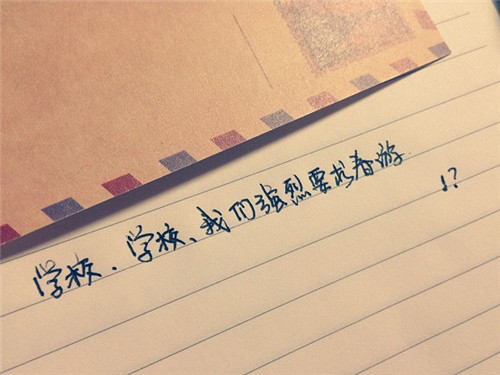 学校、学校、我们强烈要求春游!?